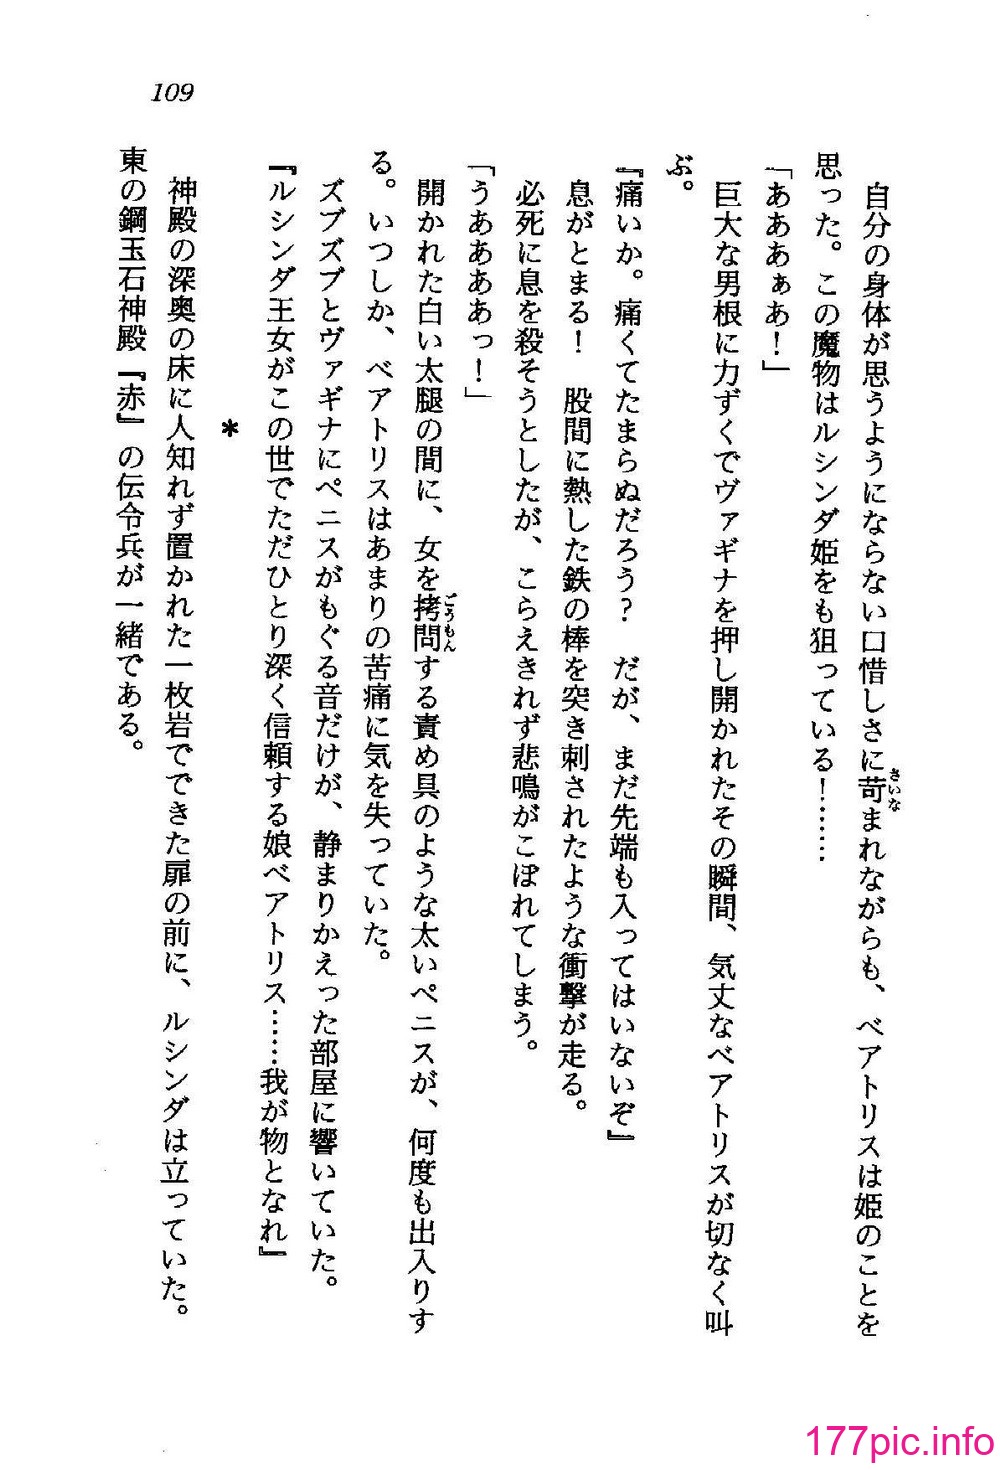 109
自分の身体が思うようにならない口惜しさに苛まれながらも、ベアトリスは姫のことを
さいな
思った。この魔物はルシンダ姫をも狙っている！………
「あああぁあ！」
巨大な男根に力ずくでヴァギナを押し開かれたその瞬間、気丈なベアトリスが切なく叫
ぶ。
『痛いか。痛くてたまらぬだろう？　だが、まだ先端も入ってはいないぞ』
息がとまる！　股間に熱した鉄の棒を突き刺されたような衝撃が走る。
必死に息を殺そうとしたが、こらえきれず悲鳴がこぼれてしまう。
「うああああっ！」
開かれた白い太腿の間に、女を拷問する責め具のような太いペニスが、何度も出入りす
ごうもん
る。いつしか、ベアトリスはあまりの苦痛に気を失っていた。
ズブズブとヴァギナにペニスがもぐる音だけが、静まりかえった部屋に響いていた。
『ルシンダ王女がこの世でただひとり深く信頼する娘ベアトリス……我が物となれ』
*
神殿の深奥の床に人知れず置かれた一枚岩でできた扉の前に、ルシンダは立っていた。
東の鋼玉石神殿『赤』の伝令兵が一緒である。
177pic.info